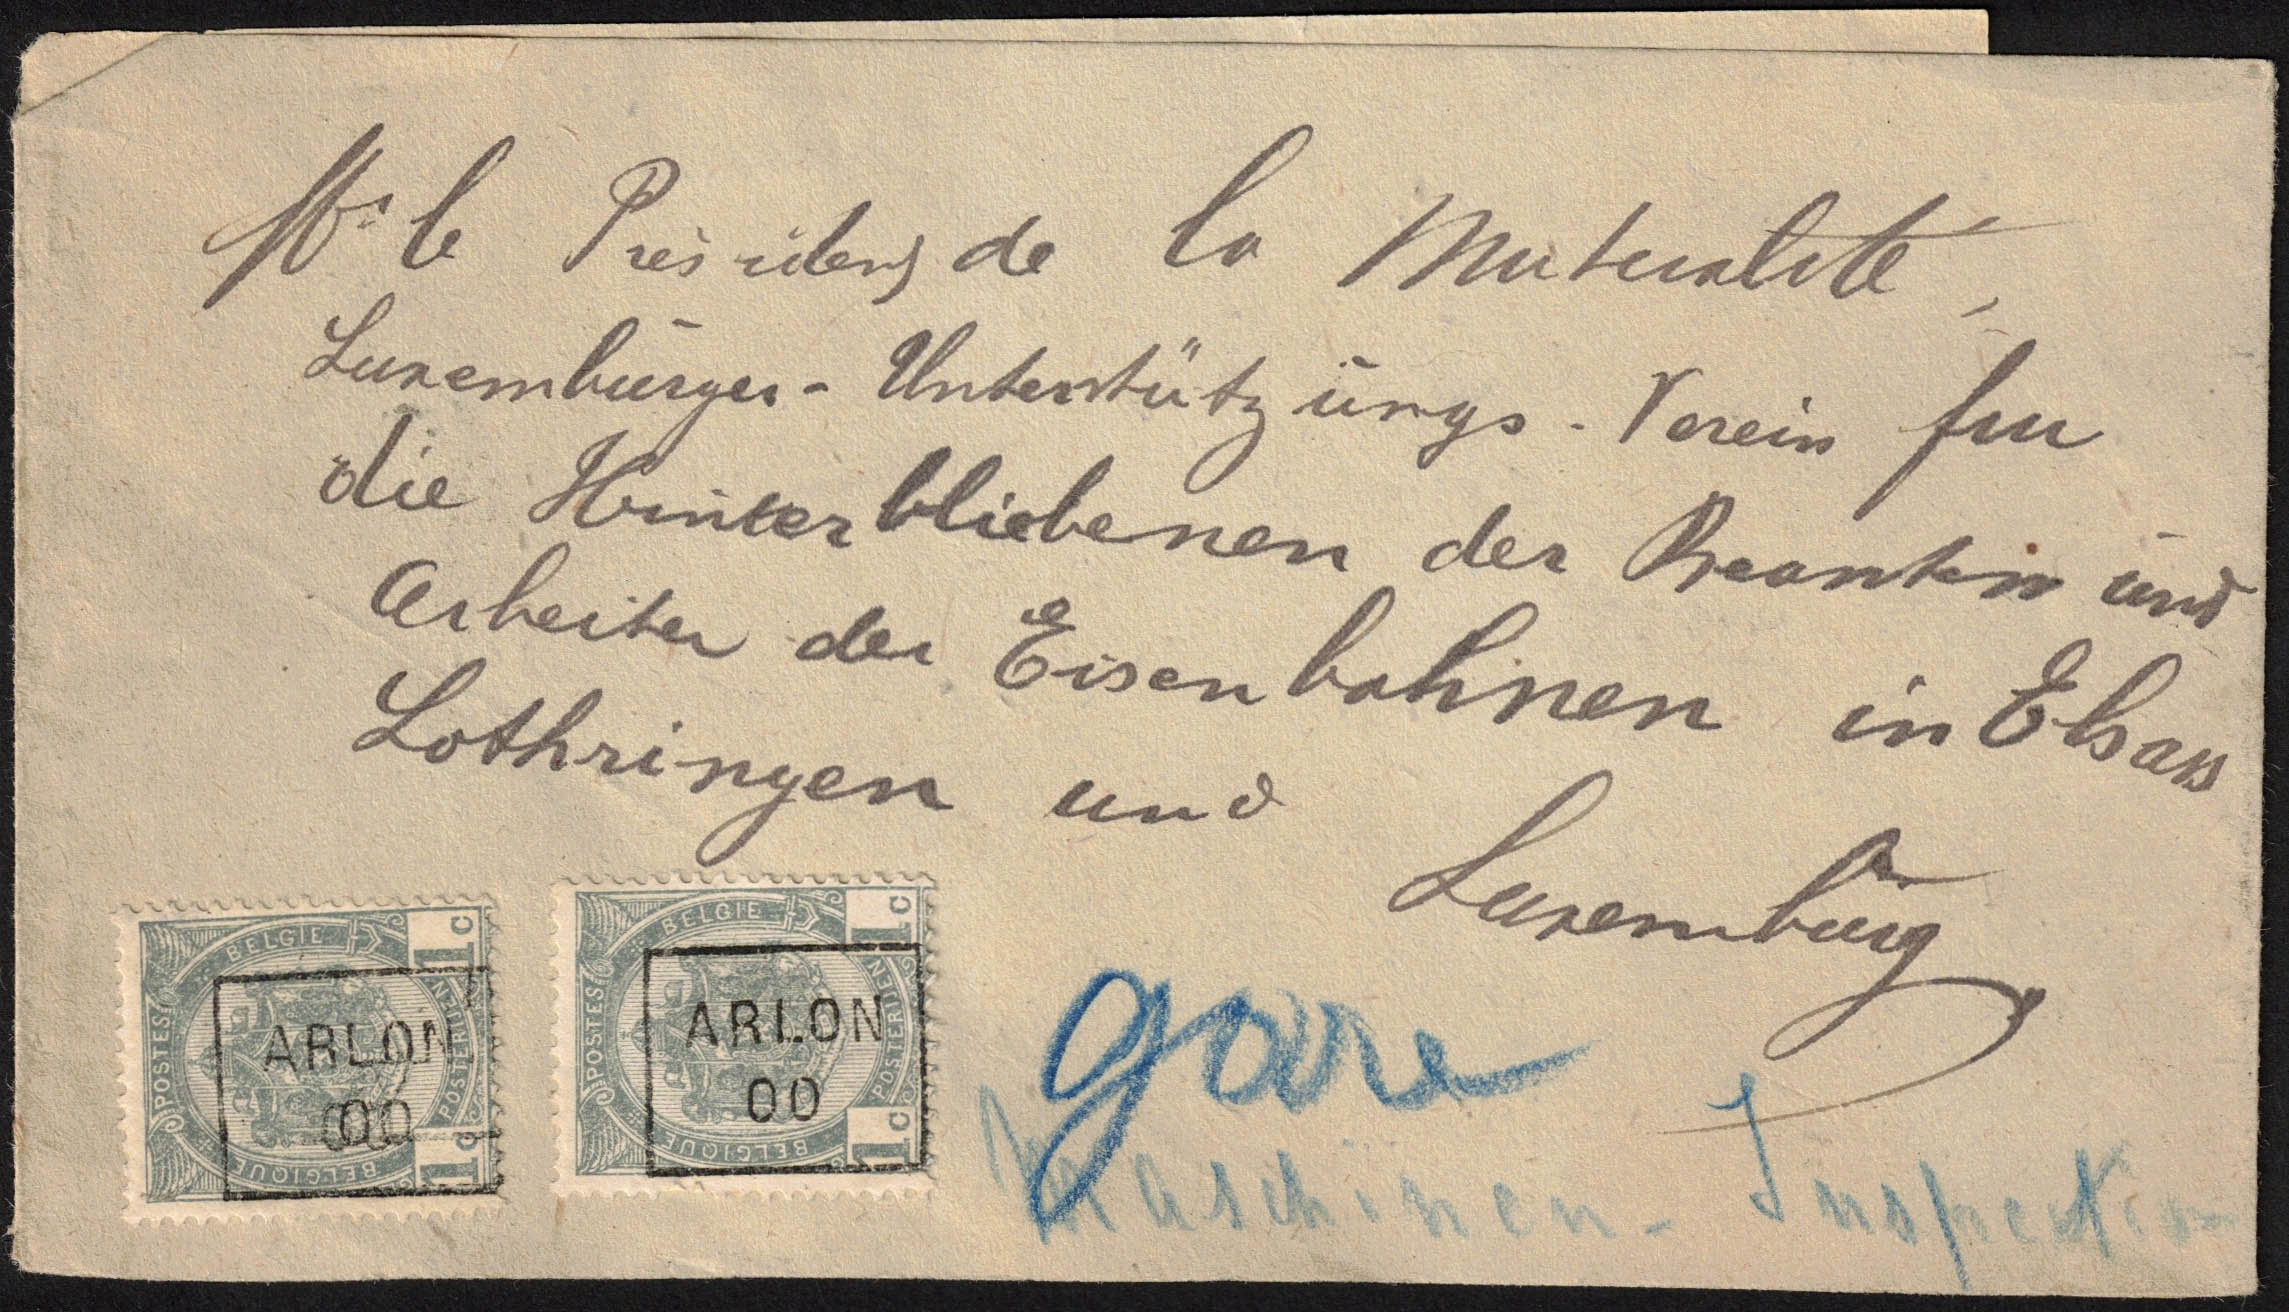 Mr le Président de la Mutualité,
Luxemburger-Unterstützungs-Verein fur
die Hinterbliebenen der Beamten und
Arbeiter der Eisenbahnen in Elsass
Lothringen und
Luxemburg
gare
Maschinen-Inspektion
BELGIE
1c
POSTES
POSTERIJEN
BELGIQUE
1c
ARLON
00
BELGIE
1c
POSTES
POSTERIJEN
BELGIQUE
1c
ARLON
00